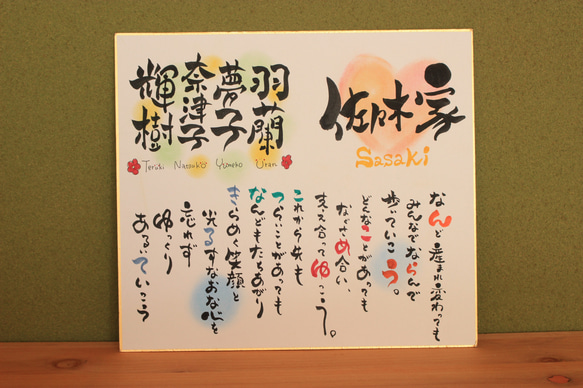 佐々木家
Sasaki
羽蘭
夢子
奈津子
輝樹
Teruki Natsuko Yumeko Uran
なんど産まれ変わっても
みんなでならんで
歩いていこう。
どんなことがあっても
なぐさめ合い、
支え合ってゆこう。
これから先も
つらいことがあっても
なんどもたちあがり
きらめく笑顔と
光るすなおな心を
忘れず
ゆっくり
あるいていこう